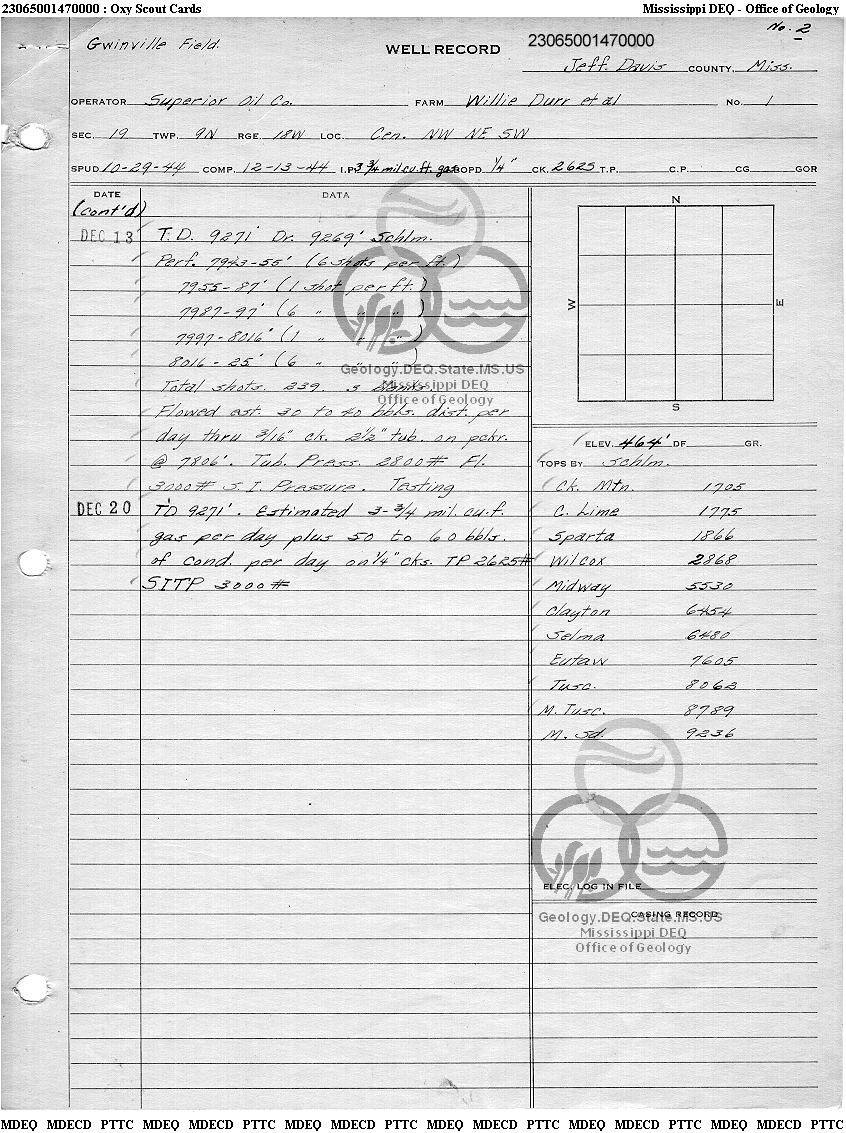 23065001470000 : Oxy Scout Cards Mississippi DEQ - Office of Geology
No. 2
Gwinville Field.
WELL RECORD 23065001470000
Jeff. Davis COUNTY, Miss.
OPERATOR Superior Oil Co. FARM Willie Durr et al No. 1
SEC. 19 TWP. 9N RGE. 18W LOC. Cen. NW NE SW
SPUD 10-29-44 COMP. 12-13-44 I.P. 3 3/4 mil.cu.ft. gas BOPD 1/4" CK. 2625 T.P. C.P. CG GOR
DATE DATA
(cont'd)
DEC 13 T.D. 9271' Dr. 9269' Schlm.
Perf. 7943-55' (6 shots per ft.)
7955-87' (1 shot per ft.)
7987-97' (6 " " " )
7997-8016' (1 " " " )
8016-25' (6 " " " )
Total shots. 239. 3 blanks
Flowed est. 30 to 40 bbls. dist. per
day thru 3/16" ck. 2 1/2" tub. on pckr.
@ 7806'. Tub. Press. 2800# Fl.
3000# S.I. Pressure. Testing
DEC 20 TD 9271'. Estimated 3-3/4 mil. cu.f.
gas per day plus 50 to 60 bbls.
of cond. per day on 1/4" cks. TP 2625#
SITP 3000#
N
W E
S
ELEV. 464' DF GR.
TOPS BY Schlm.
Ck. Mtn. 1705
C. Lime 1775
Sparta 1866
Wilcox 2868
Midway 5530
Clayton 6454
Selma 6480
Eutaw 7605
Tusc. 8062
M. Tusc. 8789
M. Sd. 9236
ELEC. LOG IN FILE
CASING RECORD
Geology.DEQ.State.MS.US
Mississippi DEQ
Office of Geology
Geology.DEQ.State.MS.US
Mississippi DEQ
Office of Geology
MDEQ MDECD PTTC MDEQ MDECD PTTC MDEQ MDECD PTTC MDEQ MDECD PTTC MDEQ MDECD PTTC MDEQ MDECD PTTC